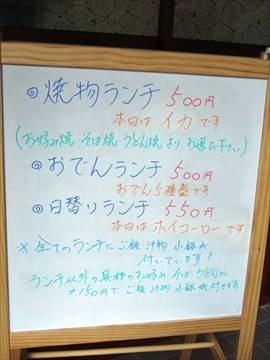 ◎焼物ランチ 500円
本日は イカ です
(お好み焼 そば焼 うどん焼 より お選び下さい)
◎おでんランチ 500円
おでん5種盛です
◎日替りランチ 550円
本日は ホイコーロー です
※全てのランチに ご飯 汁物 小鉢が
付いています!
ランチ以外の お好み そば うどんに
+150円で ご飯 汁物 小鉢が付きます